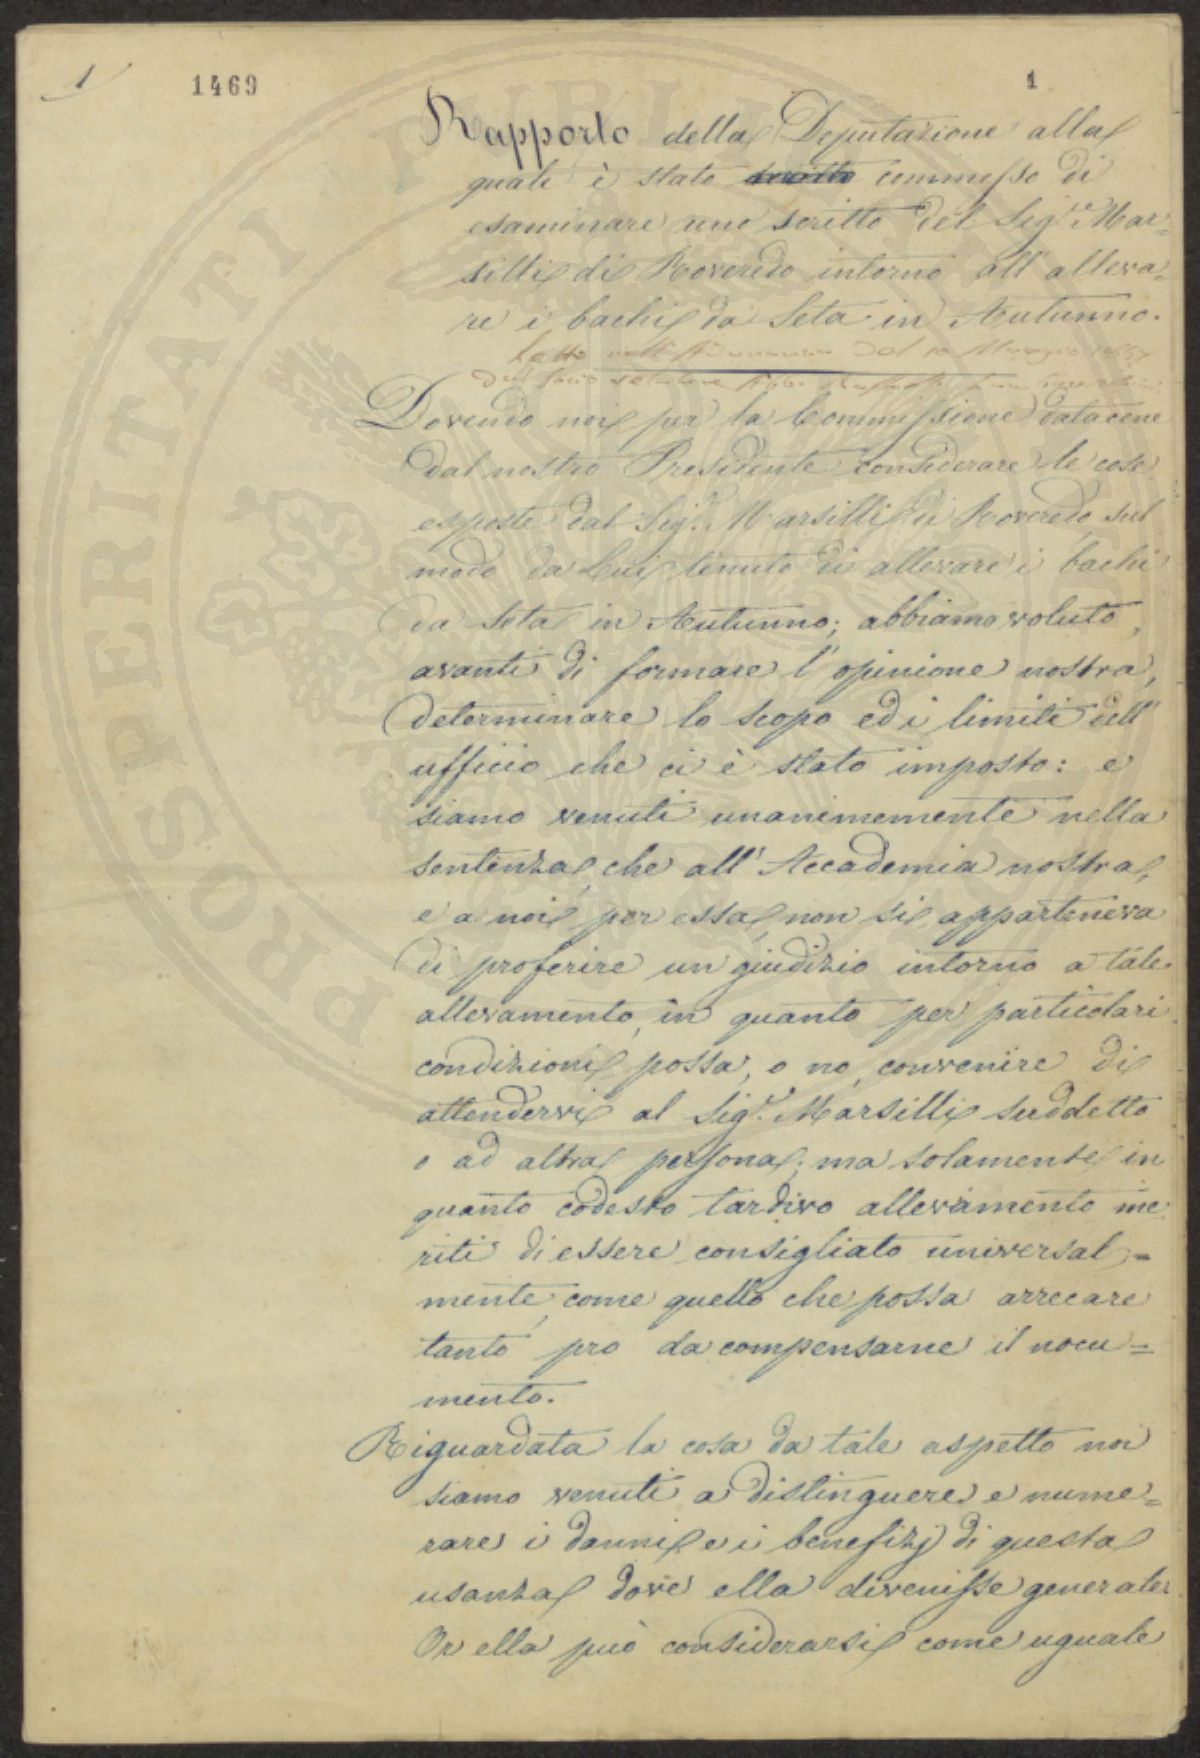 1
1469
1
Rapporto della Deputazione alla
quale è stato commesso di
esaminare uno scritto del Sigr. Mar=
silli di Roveredo intorno all' alleva=
re i bachi da Seta in Autunno.
Letto nell' Adunanza del 10 Maggio 1857
dal socio relatore
Dovendo noi per la Commissione datacene
dal nostro Presidente considerare le cose
esposte dal Sigr. Marsilli di Roveredo, sul
modo da Lui tenuto di allevare i bachi
da Seta in Autunno; abbiamo voluto,
avanti di formare l' opinione nostra,
determinare lo scopo ed i limiti dell'
ufficio che ci è stato imposto: e
siamo venuti unanimemente nella
sentenza, che all' Accademia nostra,
e a noi per essa, non si apparteneva
di proferire un giudizio intorno a tale
allevamento, in quanto per particolari
condizioni possa, o no, convenire di
attendervi al Sigr. Marsilli suddetto
o ad altra persona; ma solamente in
quanto codesto tardivo allevamento me
riti di essere consigliato universal=
mente, come quello che possa arrecare
tanto pro da compensarne il nocu=
mento.
Riguardata la cosa da tale aspetto noi
siamo venuti a distinguere e nume=
rare i danni e i benefizj di questa
usanza dove ella divenisse generale.
Or ella può considerarsi come uguale
PROSPERITATI PUBLICAE